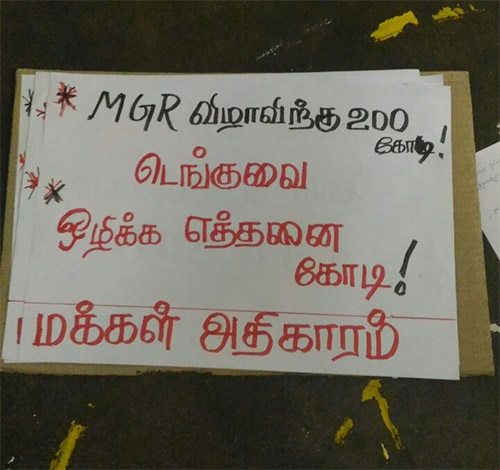 * MGR விழாவிற்கு 200
கோடி!
டெங்குவை
* ஒழிக்க எத்தனை
கோடி!
மக்கள் அதிகாரம்